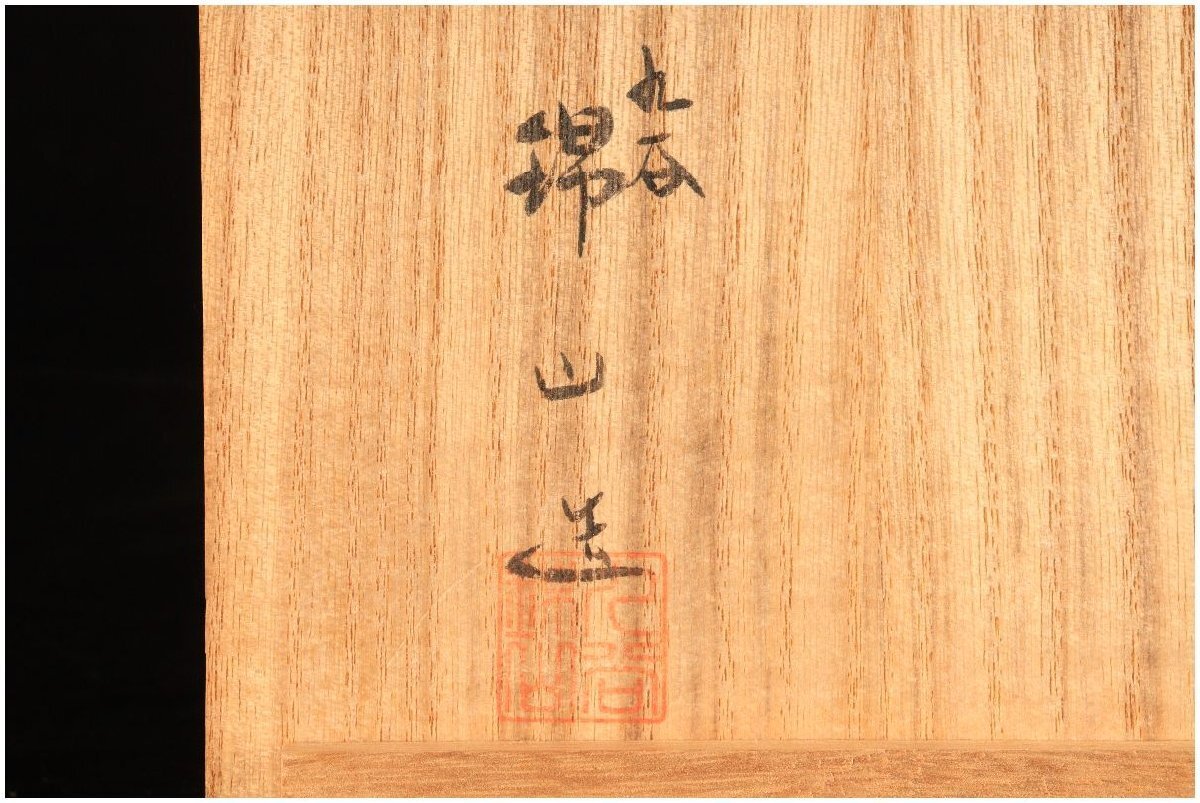 九谷
錦山
造